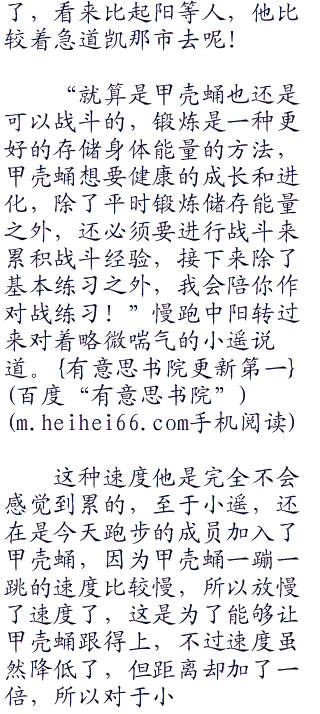 了，看来比起阳等人，他比
较着急道凯那市去呢！
“就算是甲壳蛹也还是
可以战斗的，锻炼是一种更
好的存储身体能量的方法，
甲壳蛹想要健康的成长和进
化，除了平时锻炼储存能量
之外，还必须要进行战斗来
累积战斗经验，接下来除了
基本练习之外，我会陪你作
对战练习！”慢跑中阳转过
来对着略微喘气的小遥说
道。{有意思书院更新第一}
(百度“有意思书院”)
(m.heihei66.com手机阅读)
这种速度他是完全不会
感觉到累的，至于小遥，还
在是今天跑步的成员加入了
甲壳蛹，因为甲壳蛹一蹦一
跳的速度比较慢，所以放慢
了速度了，这是为了能够让
甲壳蛹跟得上，不过速度虽
然降低了，但距离却加了一
倍，所以对于小